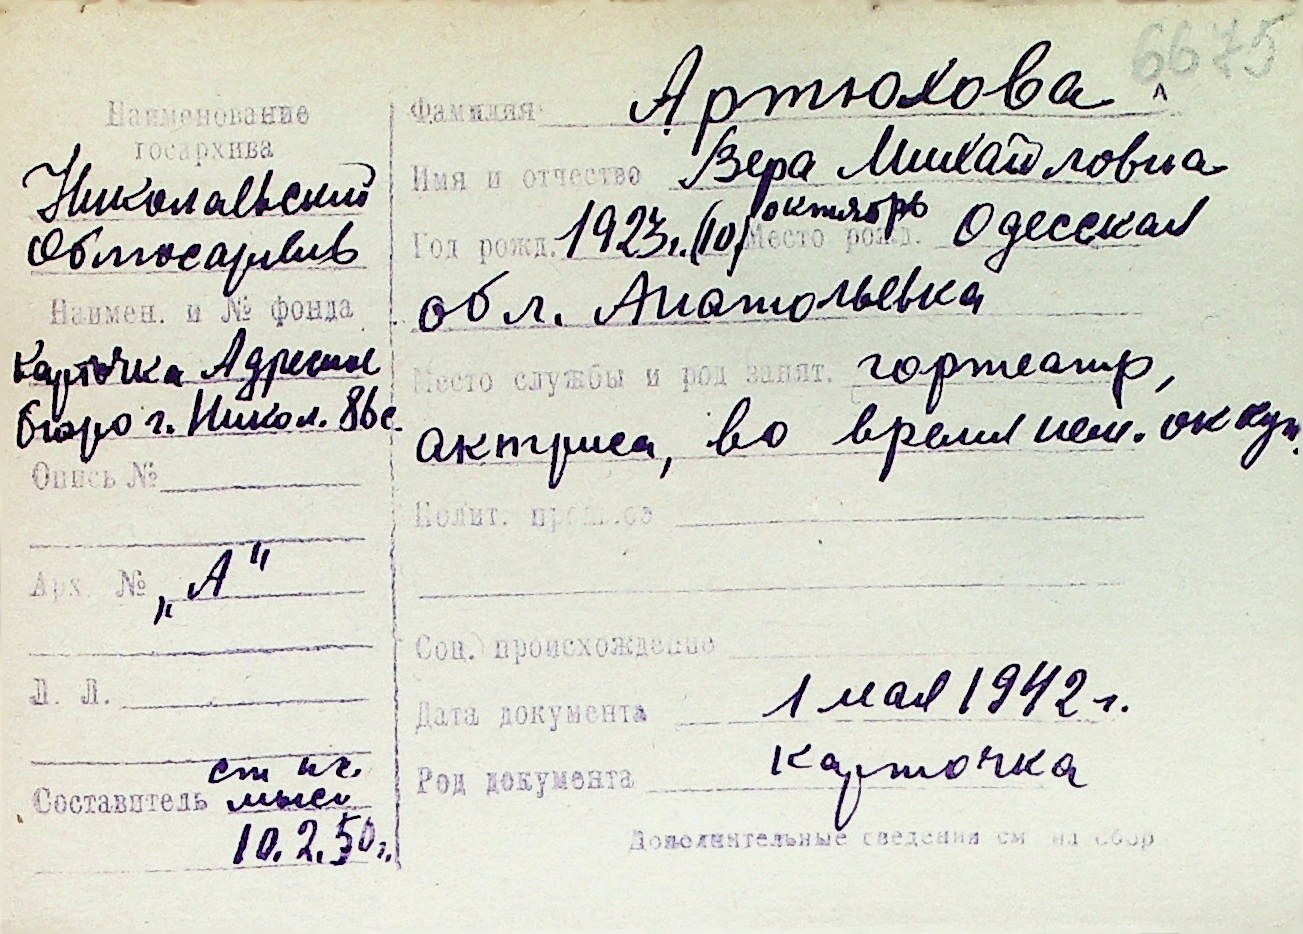 6675
Наименование
госархива
Николаевский
Облгосархив
Наимен. и № фонда
Карточка Адресное
бюро г. Никол.
Опись №
Арх. № „А"
Л. Л.
Составитель
10.2.50г.
Фамилия Артюхова
Имя и отчество Вера Михайловна
Год рожд. 1923г. (10) октябрь Место рожд. Одесская
обл. Анатольевка
Место службы и род занят. гортеатр,
актриса, во время нем. оккуп.
Полит.
Соц. происхождение
Дата документа 1 мая 1942 г.
Род документа Карточка
Дополнительные сведения см на обор